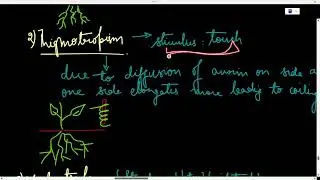 2) Thigmotropism → stimulus : touch
due to diffusion of auxin on side a
one side elongates more leading to coiling